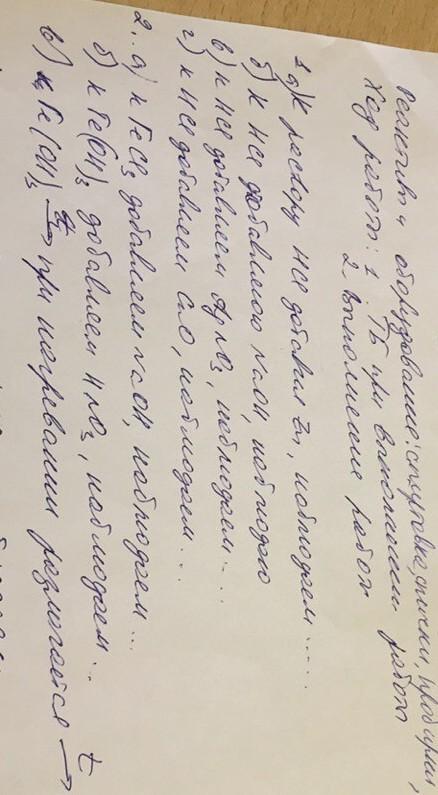 Реактивы и оборудование: спиртовка, спички, пробирки,
Ход работы: 1. ТБ при выполнении работ
2. Выполнение работ
1. а) К раствору HCl добавил Zn, наблюдаем.....
б) к HCl добавляю NaOH, наблюдаю
в) к HCl добавляем AgNO₃, наблюдаем....
г) к HCl добавляем CaO, наблюдаем...
2. а) к FeCl₃ добавляем NaOH, наблюдаем...
б) к Fe(OH)₃ добавляем HNO₃, наблюдаем...
в) Fe(OH)₃ t→ при нагревании разлагается t→